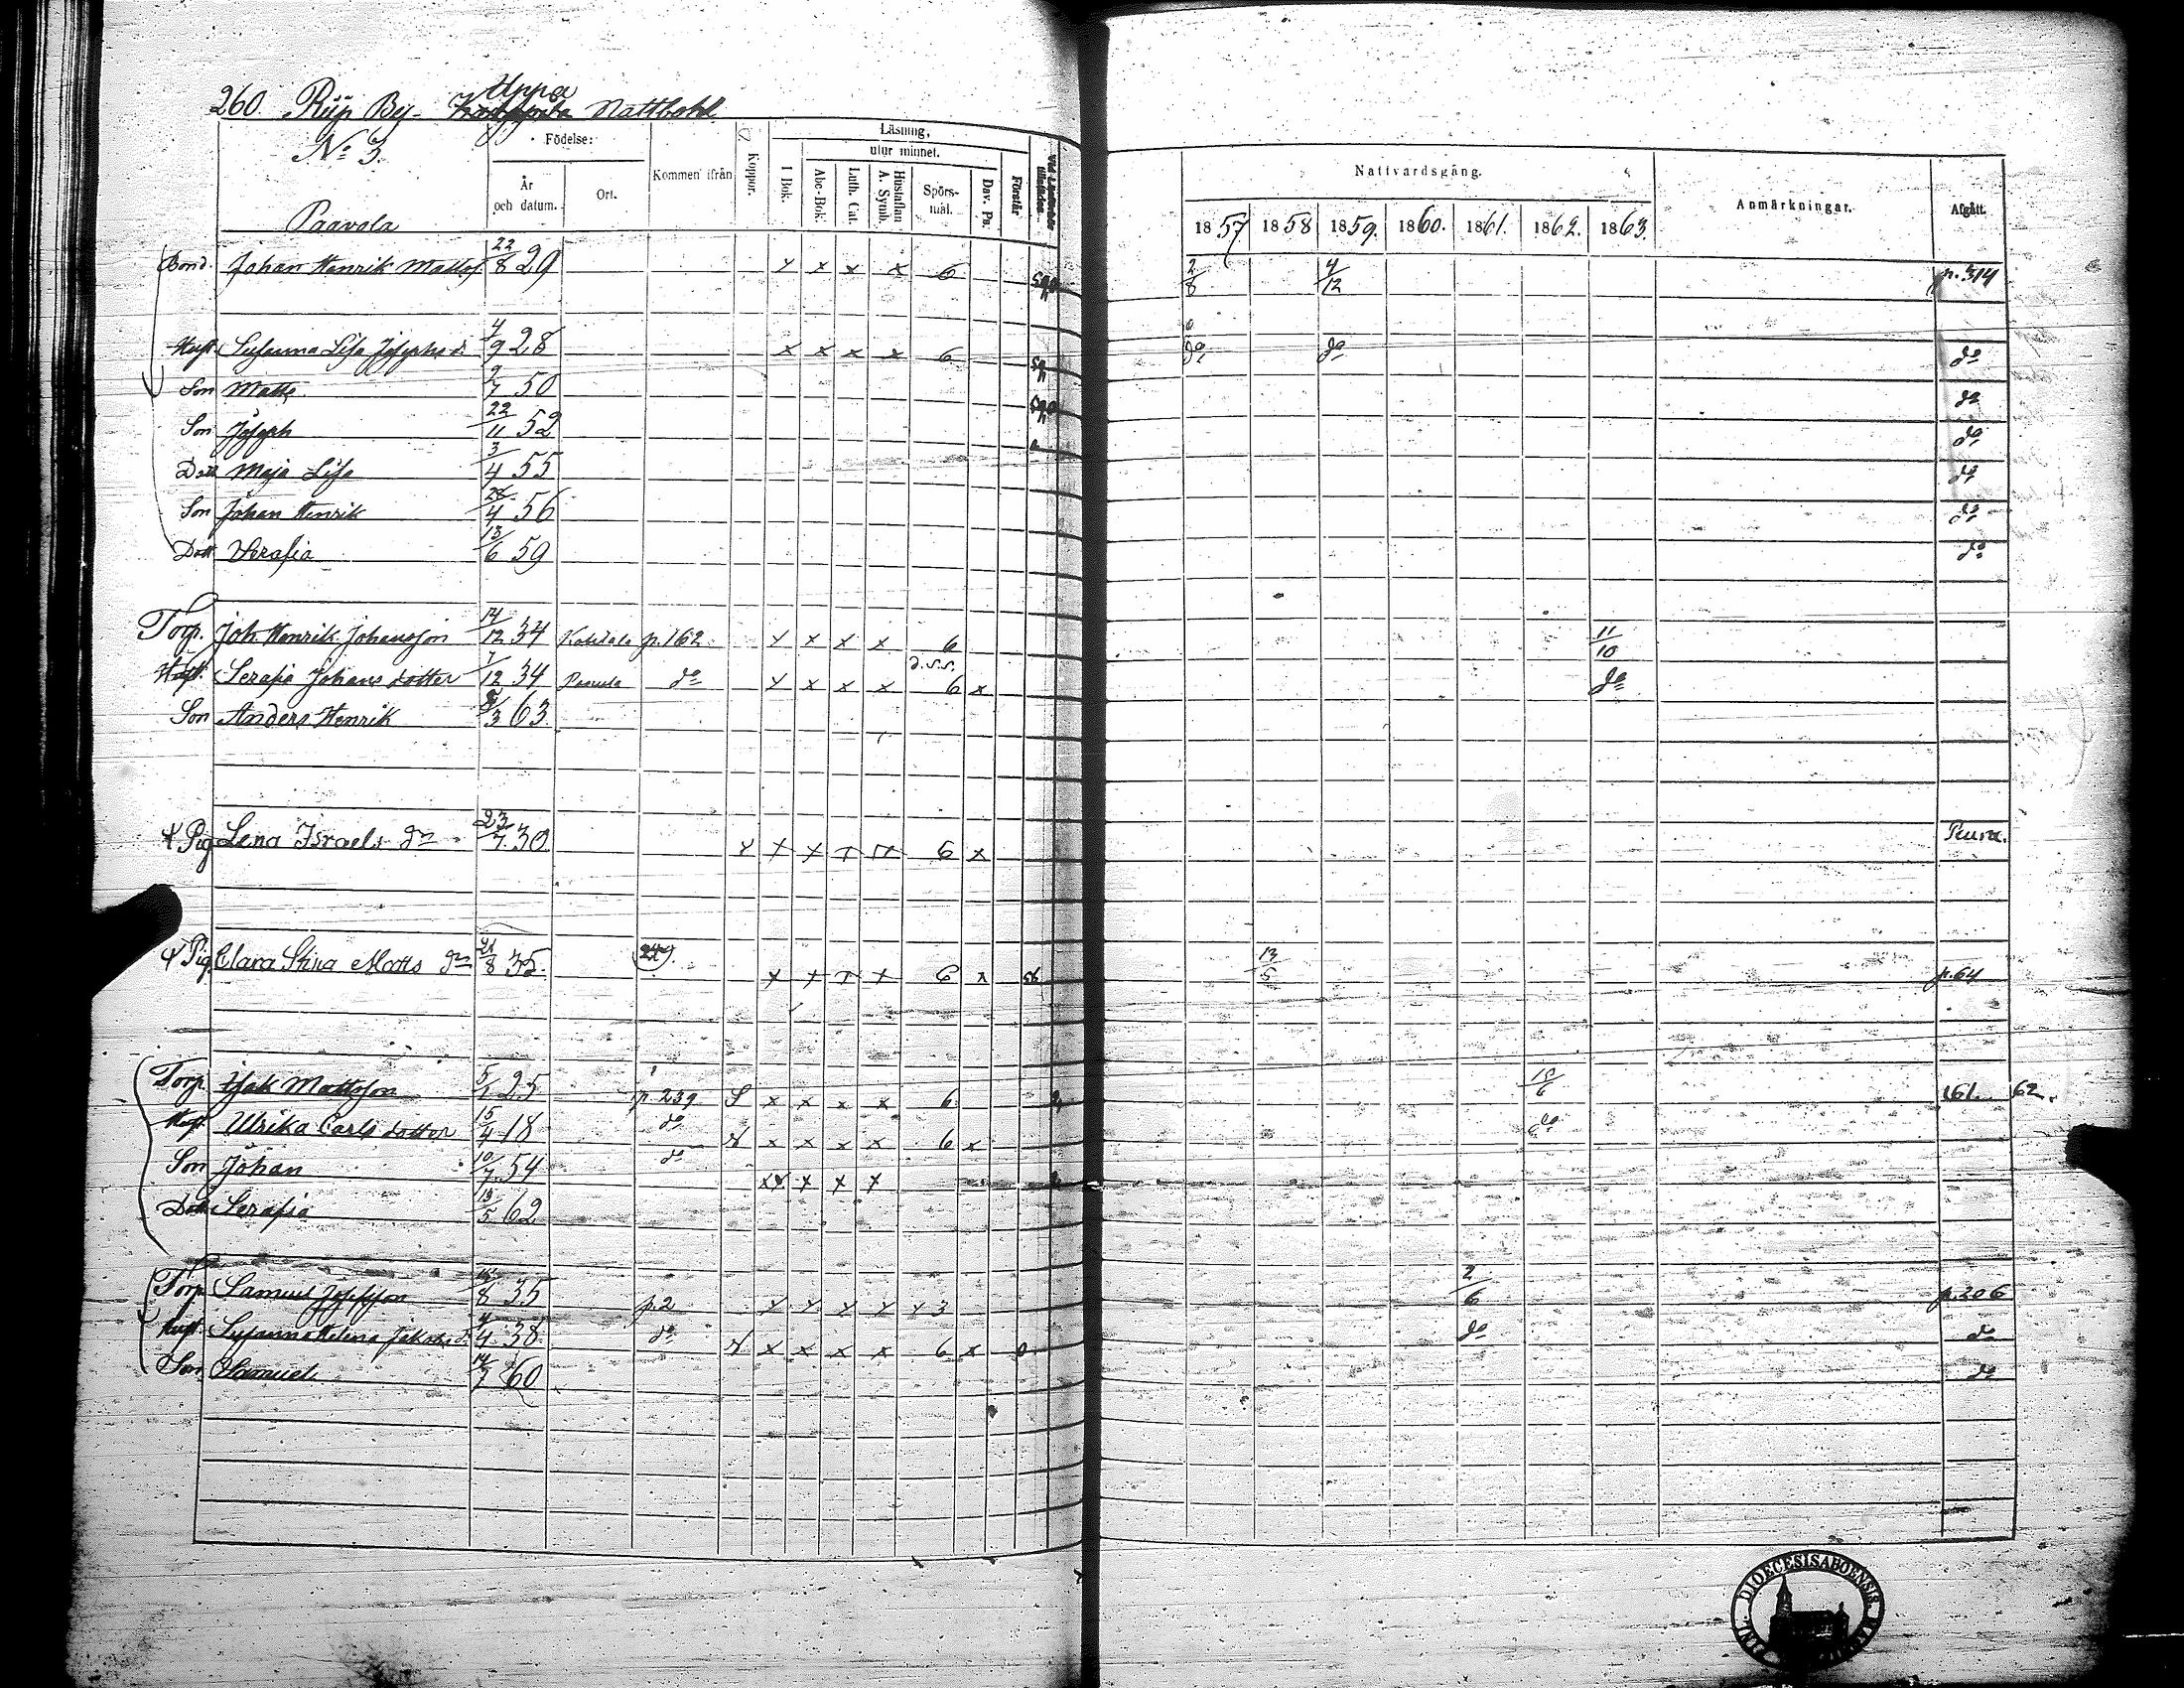 260. Riip By. Uppa Nattbohl
No 3.
Paavola
Födelse: År och datum. Ort. Kommen ifrån Koppor. Läsning, I Bok. utur minnet. Abc-Bok. Luth. Cat. Hustaflan A. Symb. Spörsmål. Dav. Ps. Förstår
Nattvardsgång. Anmärkningar. Afgått.
1857 1858 1859. 1860. 1861. 1862. 1863.
Bond. Johan Henrik Mattss. 22/8 29 x x x x 6 2/8 4/12 p. 314
Hust. Susanna Lisa Josephs d. 4/9 28 x x x x 6 do do do
Son Matts 9/7 50 do
Son Joseph 22/11 52 do
Dott Maja Lisa 3/4 55 do
Son Johan Henrik 28/4 56 do
Dott Serafia 13/6 59 do
Torp. Joh. Henrik Johansson 14/12 34 p. 162. x x x x 6 11/10
Hust. Serafia Johans dotter 7/12 34 do x x x x 6 x do
Son Anders Henrik /3 63.
Pig Lena Israels dr 23/7 30 x x x x x 6 x
Pig. Clara Stina Matts dr 21/8 35. x x x x 6 x 13/5 p. 64
Torp Isak Mattsson 5/1 25 p. 239 S x x x x 6 /6 161. 62.
Hust Ulrika Carls dotter 15/4 18 do x x x x x 6 x do
Son Johan 10/7 54 do xx x x x
Dott Serafia 13/5 62
Torp Samuel /8 35 p. 2 x x x x x 3 2/6 p. 206
Hust. Susanna Helena Jakobs d. /4 38. do x x x x x 6 x do do
Son Samuel 14/7 60 do
DIOECESIS ABOENSIS